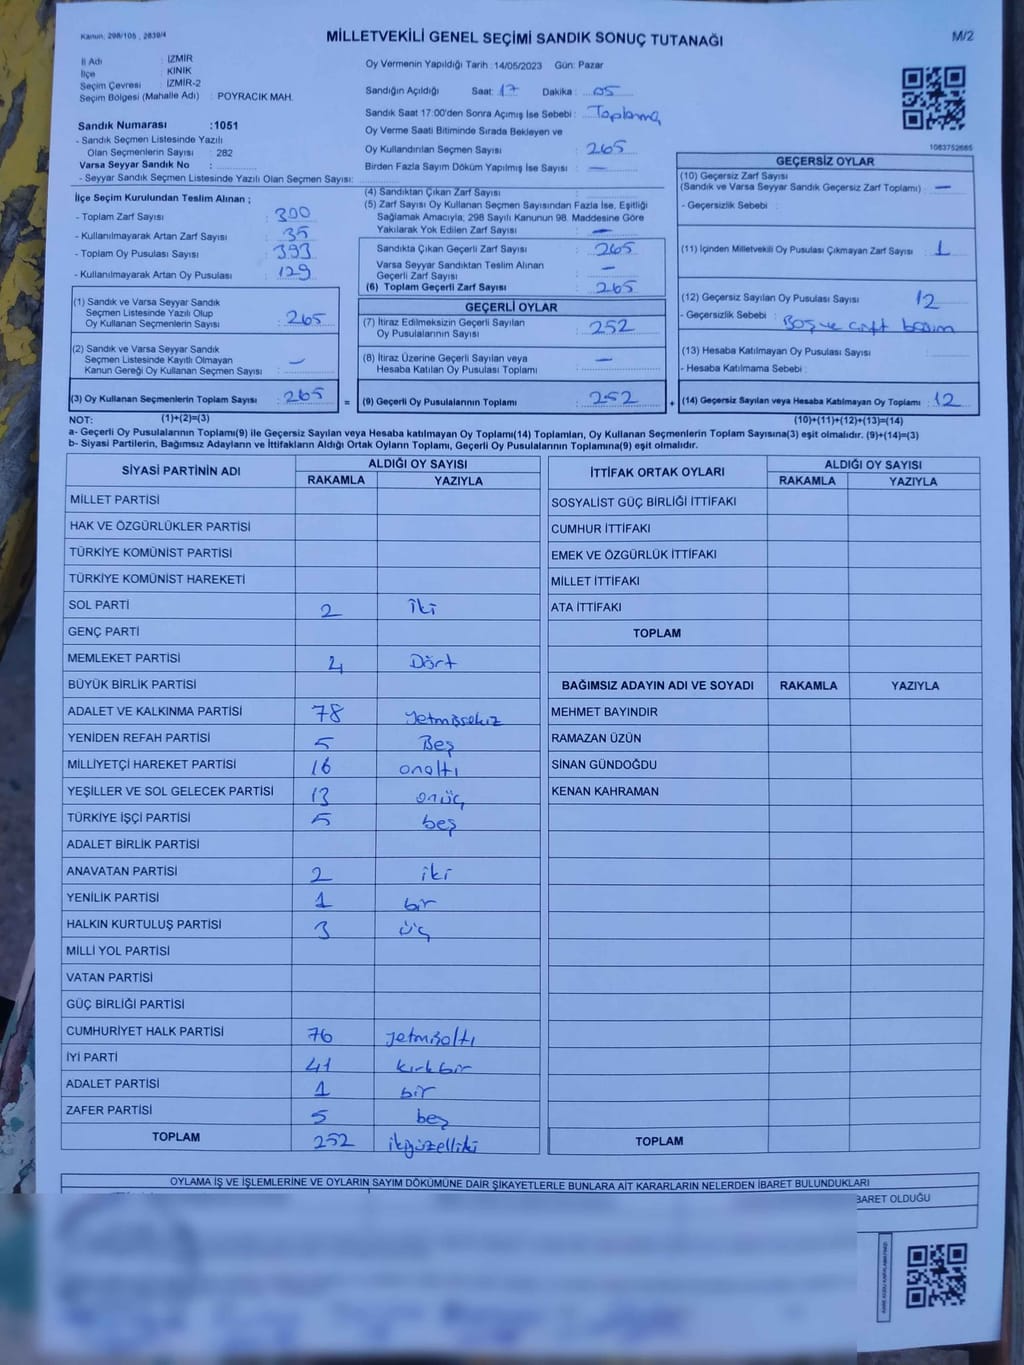 Kanun, 298/105 , 2839/4
MİLLETVEKİLİ GENEL SEÇİMİ SANDIK SONUÇ TUTANAĞI
M/2
İl Adı : İZMİR
İlçe : KINIK
Seçim Çevresi : İZMİR-2
Seçim Bölgesi (Mahalle Adı) : POYRACIK MAH.
Oy Vermenin Yapıldığı Tarih :14/05/2023 Gün: Pazar
Sandığın Açıldığı Saat: 17 Dakika : 05
Sandık Saat 17:00'den Sonra Açımış İse Sebebi : Toplama
Oy Verme Saati Bitiminde Sırada Bekleyen ve
Oy Kullandırılan Seçmen Sayısı : 265
Birden Fazla Sayım Döküm Yapılmış İse Sayısı : —
1083752665
Sandık Numarası :1051
- Sandık Seçmen Listesinde Yazılı
Olan Seçmenlerin Sayısı : 282
Varsa Seyyar Sandık No :
- Seyyar Sandık Seçmen Listesinde Yazılı Olan Seçmen Sayısı:
İlçe Seçim Kurulundan Teslim Alınan ;
- Toplam Zarf Sayısı : 300
- Kullanılmayarak Artan Zarf Sayısı : 35
- Toplam Oy Pusulası Sayısı : 393
- Kullanılmayarak Artan Oy Pusulası : 129
(1) Sandık ve Varsa Seyyar Sandık
Seçmen Listesinde Yazılı Olup
Oy Kullanan Seçmenlerin Sayısı : 265
(2) Sandık ve Varsa Seyyar Sandık
Seçmen Listesinde Kayıtlı Olmayan
Kanun Gereği Oy Kullanan Seçmen Sayısı : —
(3) Oy Kullanan Seçmenlerin Toplam Sayısı : 265 =
(4) Sandıktan Çıkan Zarf Sayısı :
(5) Zarf Sayısı Oy Kullanan Seçmen Sayısından Fazla İse, Eşitliği
Sağlamak Amacıyla; 298 Sayılı Kanunun 98. Maddesine Göre
Yakılarak Yok Edilen Zarf Sayısı : —
Sandıkta Çıkan Geçerli Zarf Sayısı : 265
Varsa Seyyar Sandıktan Teslim Alınan
Geçerli Zarf Sayısı : —
(6) Toplam Geçerli Zarf Sayısı : 265
GEÇERLİ OYLAR
(7) İtiraz Edilmeksizin Geçerli Sayılan
Oy Pusulalarının Sayısı : 252
(8) İtiraz Üzerine Geçerli Sayılan veya
Hesaba Katılan Oy Pusulası Toplamı : —
(9) Geçerli Oy Pusulalarının Toplamı : 252 +
GEÇERSİZ OYLAR
(10) Geçersiz Zarf Sayısı
(Sandık ve Varsa Seyyar Sandık Geçersiz Zarf Toplamı) : —
- Geçersizlik Sebebi :
(11) İçinden Milletvekili Oy Pusulası Çıkmayan Zarf Sayısı : 1
(12) Geçersiz Sayılan Oy Pusulası Sayısı : 12
- Geçersizlik Sebebi : Boş ve çift basım
(13) Hesaba Katılmayan Oy Pusulası Sayısı :
- Hesaba Katılmama Sebebi :
(14) Geçersiz Sayılan veya Hesaba Katılmayan Oy Toplamı : 12
NOT: (1)+(2)=(3) (10)+(11)+(12)+(13)=(14)
a- Geçerli Oy Pusulalarının Toplamı(9) ile Geçersiz Sayılan veya Hesaba katılmayan Oy Toplamı(14) Toplamları, Oy Kullanan Seçmenlerin Toplam Sayısına(3) eşit olmalıdır. (9)+(14)=(3)
b- Siyasi Partilerin, Bağımsız Adayların ve İttifakların Aldığı Ortak Oyların Toplamı, Geçerli Oy Pusulalarının Toplamına(9) eşit olmalıdır.
SİYASİ PARTİNİN ADI ALDIĞI OY SAYISI
RAKAMLA YAZIYLA
MİLLET PARTİSİ
HAK VE ÖZGÜRLÜKLER PARTİSİ
TÜRKİYE KOMÜNİST PARTİSİ
TÜRKİYE KOMÜNİST HAREKETİ
SOL PARTİ 2 iki
GENÇ PARTİ
MEMLEKET PARTİSİ 4 Dört
BÜYÜK BİRLİK PARTİSİ
ADALET VE KALKINMA PARTİSİ 78 yetmişsekiz
YENİDEN REFAH PARTİSİ 5 Beş
MİLLİYETÇİ HAREKET PARTİSİ 16 onaltı
YEŞİLLER VE SOL GELECEK PARTİSİ 13 onüç
TÜRKİYE İŞÇİ PARTİSİ 5 beş
ADALET BİRLİK PARTİSİ
ANAVATAN PARTİSİ 2 iki
YENİLİK PARTİSİ 1 bir
HALKIN KURTULUŞ PARTİSİ 3 üç
MİLLİ YOL PARTİSİ
VATAN PARTİSİ
GÜÇ BİRLİĞİ PARTİSİ
CUMHURİYET HALK PARTİSİ 76 yetmişaltı
İYİ PARTİ 41 kırkbir
ADALET PARTİSİ 1 bir
ZAFER PARTİSİ 5 beş
TOPLAM 252 ikiyüzelliiki
İTTİFAK ORTAK OYLARI ALDIĞI OY SAYISI
RAKAMLA YAZIYLA
SOSYALİST GÜÇ BİRLİĞİ İTTİFAKI
CUMHUR İTTİFAKI
EMEK VE ÖZGÜRLÜK İTTİFAKI
MİLLET İTTİFAKI
ATA İTTİFAKI
TOPLAM
BAĞIMSIZ ADAYIN ADI VE SOYADI RAKAMLA YAZIYLA
MEHMET BAYINDIR
RAMAZAN ÜZÜN
SİNAN GÜNDOĞDU
KENAN KAHRAMAN
TOPLAM
OYLAMA İŞ VE İŞLEMLERİNE VE OYLARIN SAYIM DÖKÜMÜNE DAİR ŞİKAYETLERLE BUNLARA AİT KARARLARIN NELERDEN İBARET BULUNDUKLARI
BARET OLDUĞU